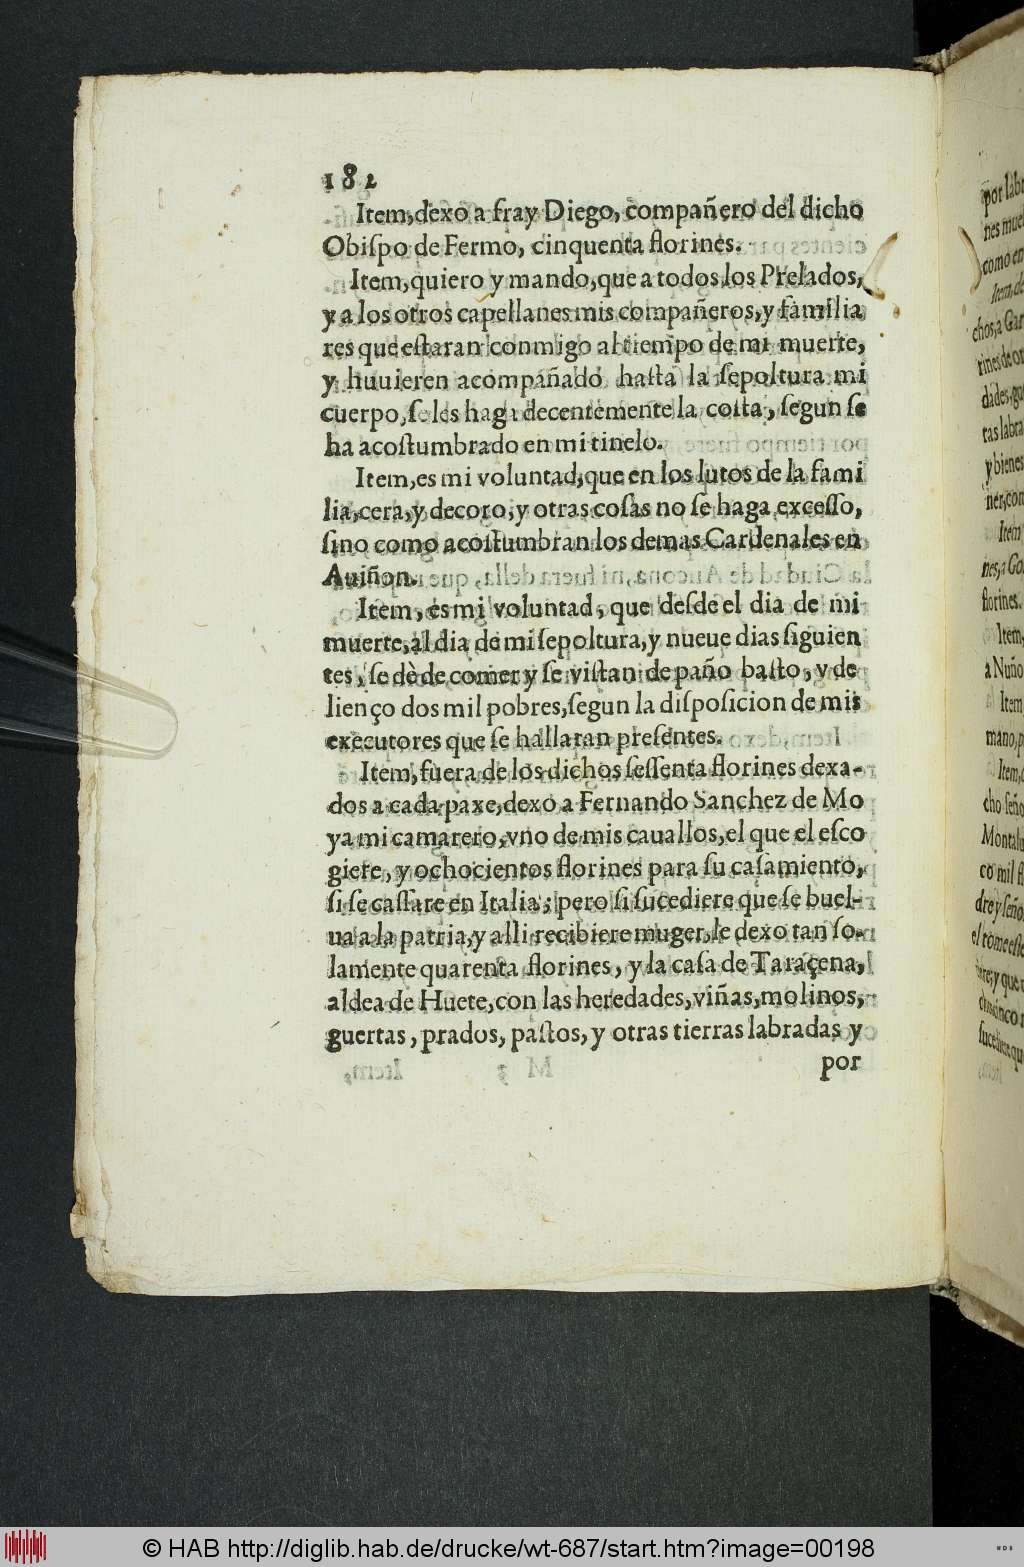 182
Item, dexo a fray Diego, compañero del dicho
Obiſpo de Fermo, cinquenta florines.
Item, quiero y mando, que a todos los Prelados,
y a los otros capellanes mis compañeros, y familia
res que eſtaran conmigo al tiempo de mi muerte,
y huuieren acompañado haſta la ſepoltura mi
cuerpo, ſe les haga decentemente la coſta, ſegun ſe
ha acoſtumbrado en mi tinelo.
Item, es mi voluntad, que en los lutos de la fami
lia, cera, y decoro, y otras coſas no ſe haga exceſſo,
ſino como acoſtumbran los demas Cardenales en
Auiñon.
Item, es mi voluntad, que deſde el dia de mi
muerte, al dia de mi ſepoltura, y nueue dias ſiguien
tes, ſe dè de comer y ſe viſtan de paño baſto, y de
lienço dos mil pobres, ſegun la diſpoſicion de mis
executores que ſe hallaran preſentes.
Item, fuera de los dichos ſeſſenta florines dexa-
dos a cada paxe, dexo a Fernando Sanchez de Mo
ya mi camarero, vno de mis cauallos, el que el eſco
giere, y ochocientos florines para ſu caſamiento,
ſi ſe caſſare en Italia; pero ſi ſucediere que ſe buel-
ua a la patria, y alli recibiere muger, le dexo tan ſo-
lamente quarenta florines, y la caſa de Taraçena,
aldea de Huete, con las heredades, viñas, molinos,
guertas, prados, paſtos, y otras tierras labradas y
por
por labr
nes mue
como en
Item, de
chos, a Gar
rines de or
dades, gu
tas labra
y bienes
ner, con
Item
nes, a Go
florines.
Item,
a Nuño
Item
mano, p
Item, d
cho ſeño
Montalu
co mil fl
dre y ſeño
el tome eſte
ſucediere qu
© HAB http://diglib.hab.de/drucke/wt-687/start.htm?image=00198